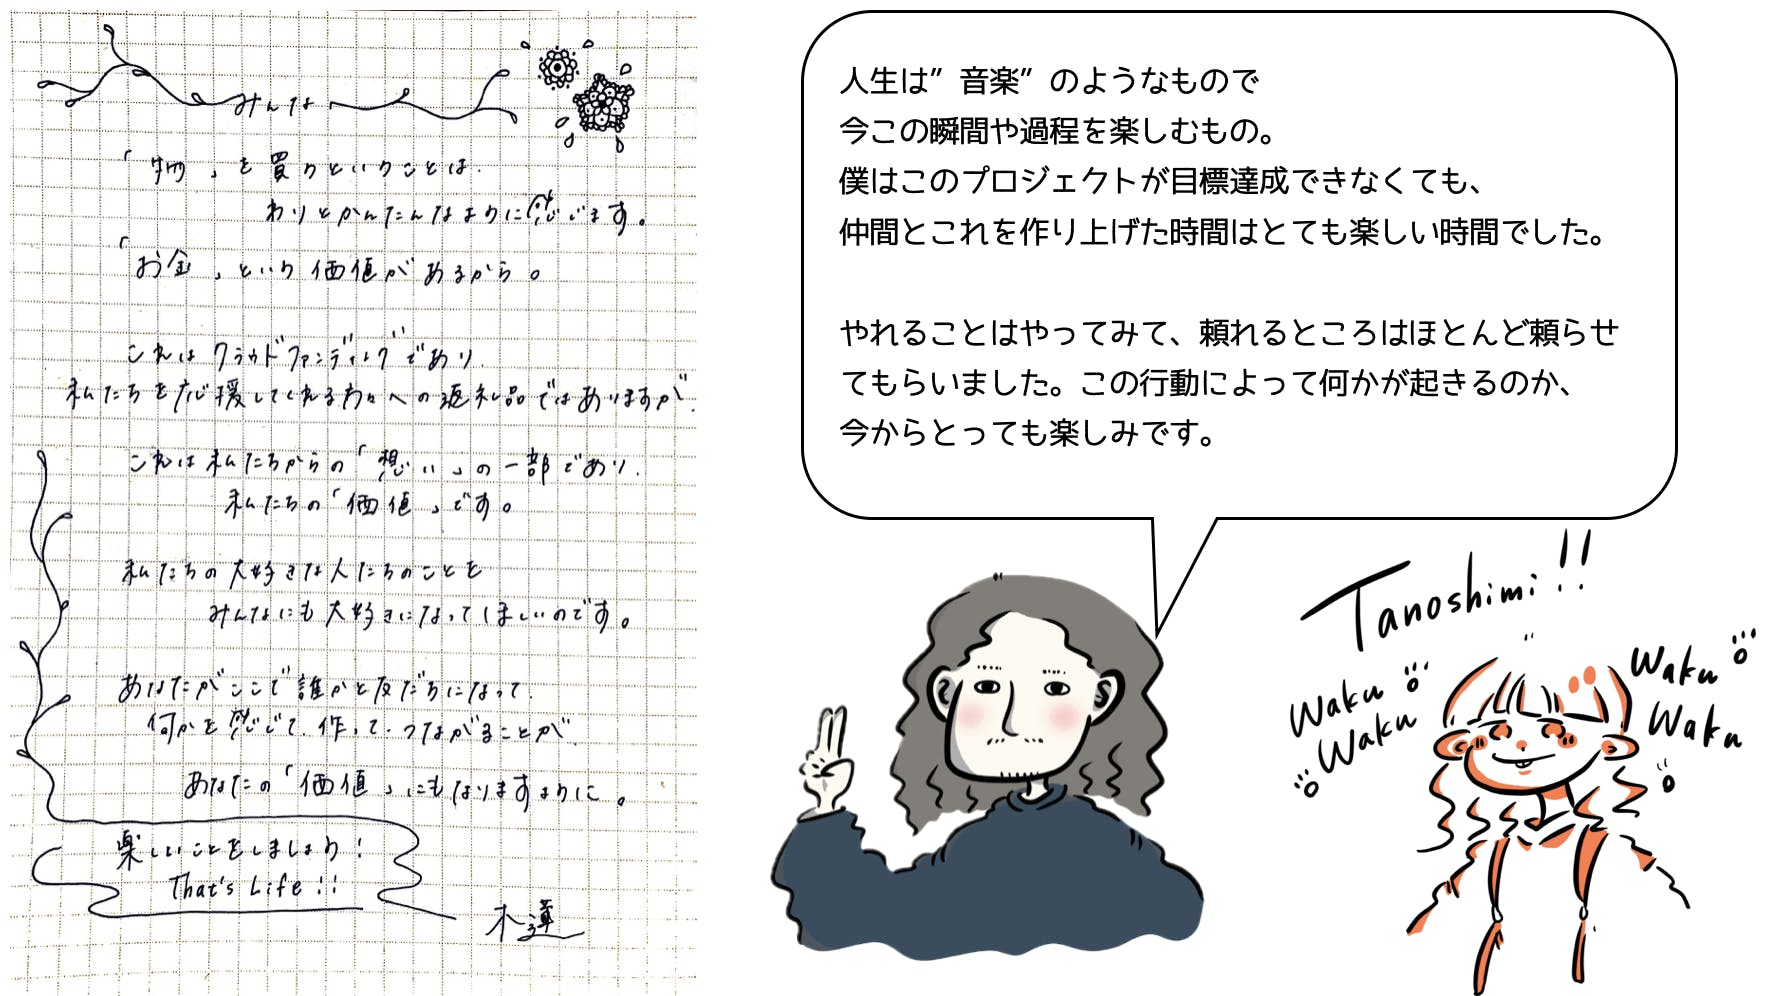 みんな
「物」を買うということは.
わりとかんたんなように感じます。
「お金」という価値があるから。
これはクラウドファンディングであり.
私たちを応援してくれる方々への返礼品ではありますが.
これは私たちからの「想い」の一部であり.
私たちの「価値」です。
私たちの大好きな人たちのことを
みんなにも大好きになってほしいのです。
あなたがここで誰かと友だちになって.
何かを感じて.作って.つながることが.
あなたの「価値」にもなりますように。
楽しいことをしましょう!
That's Life!!
木蓮
人生は”音楽”のようなもので
今この瞬間や過程を楽しむもの。
僕はこのプロジェクトが目標達成できなくても、
仲間とこれを作り上げた時間はとても楽しい時間でした。
やれることはやってみて、頼れるところはほとんど頼らせ
てもらいました。この行動によって何かが起きるのか、
今からとっても楽しみです。
Tanoshimi!!
Waku
Waku
Waku
Waku